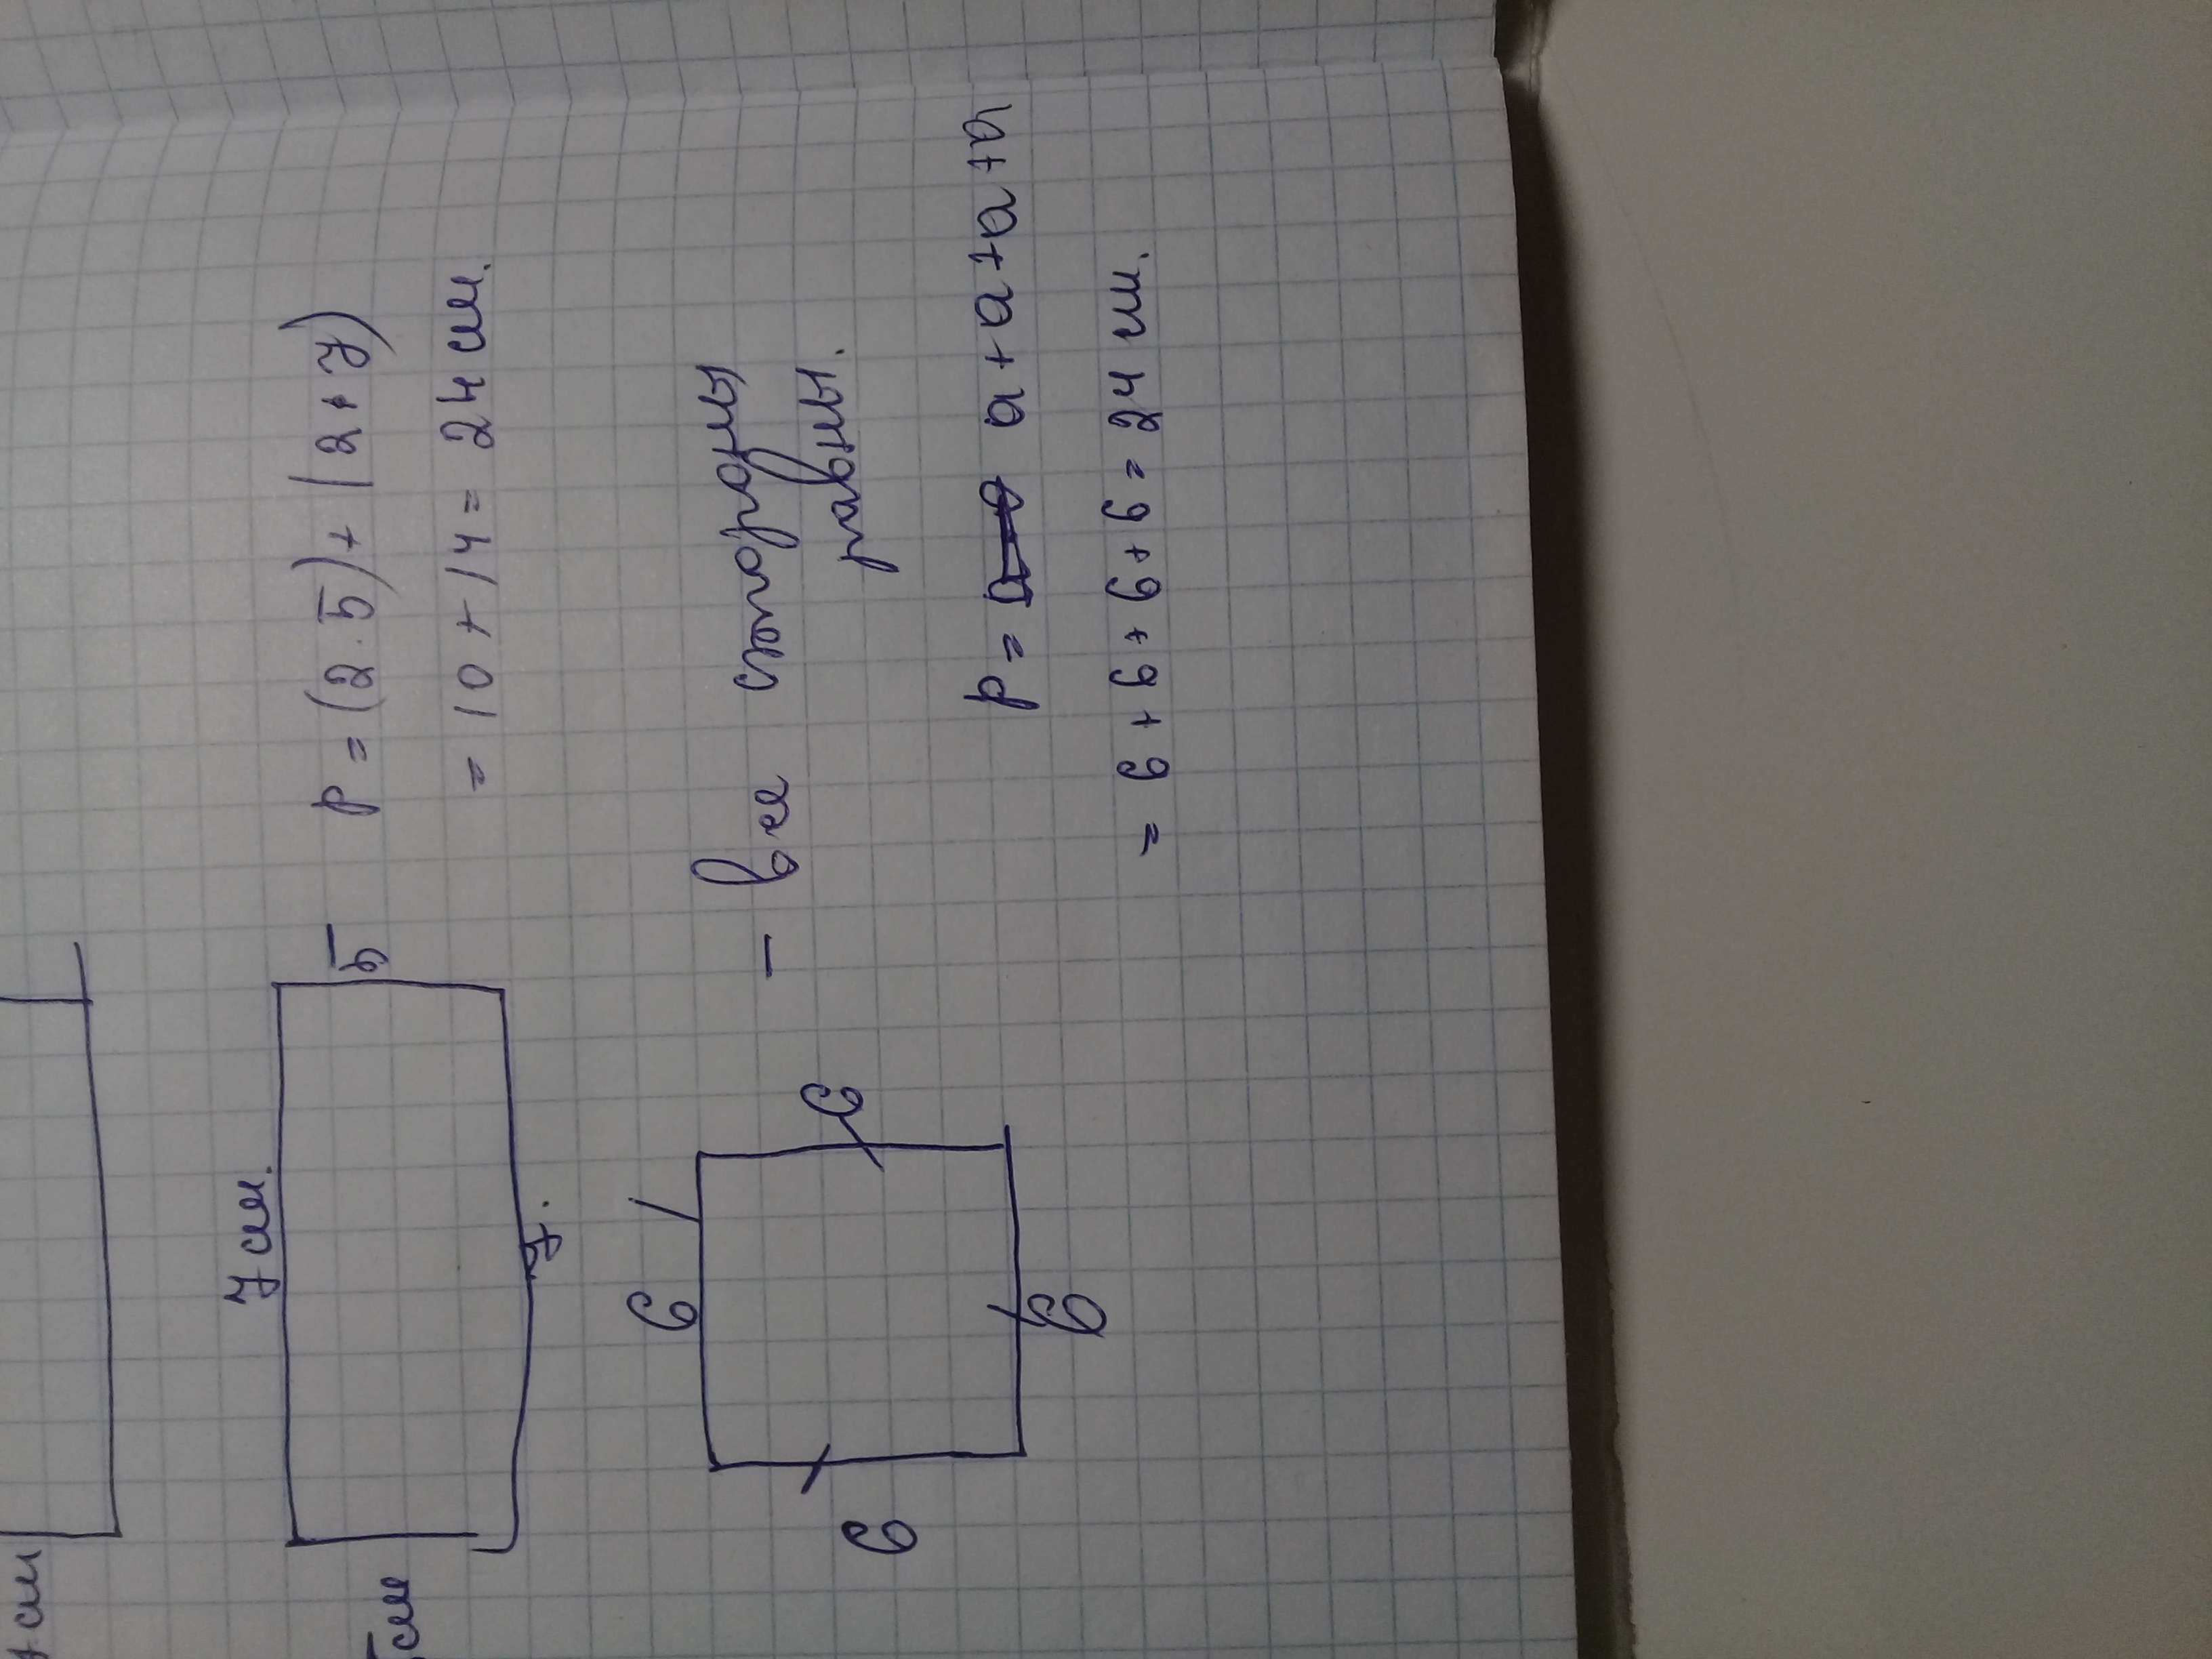 см
7 см.
5
5см
7.
P = (2 · 5) + (2 · 7)
= 10 + 14 = 24 см.
6
6
6
6
- все стороны
равны.
P = a + a + a + a
= 6 + 6 + 6 + 6 = 24 см.